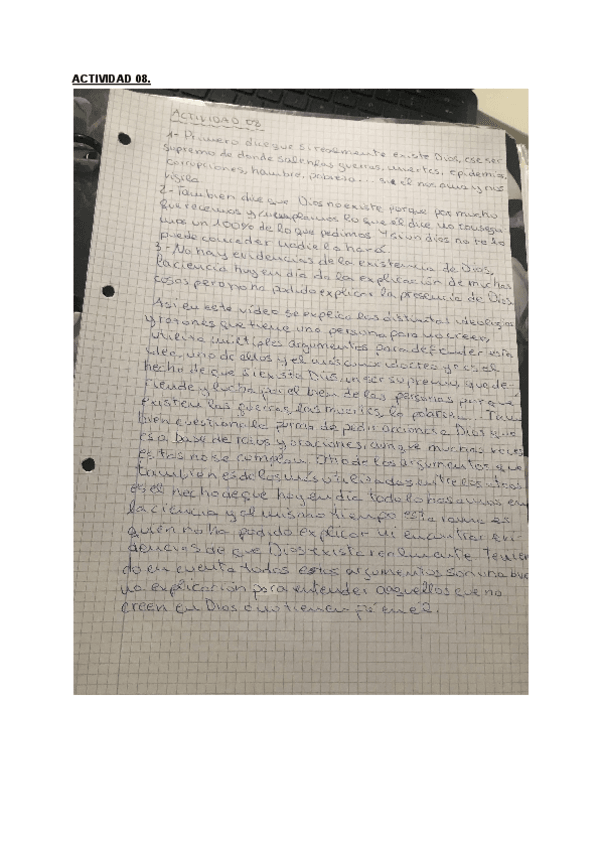 ACTIVIDAD 08.
ACTIVIDAD 08
1- Primero dice que si realmente existe Dios, ese ser
supremo de donde salen las guerras, muertes, epidemia,
corrupciones, hambre, pobreza... si él nos ama y nos
vigila
2- Tambien dice que Dios no existe porque por mucho
que recemos y cumplamos lo que él dice no consegui
mos un 100% de lo que pedimos Y si un dios no te lo
puede conceder nadie lo hará
3- No hay evidencias de la existencia de Dios,
la ciencia hoy en día da la explicación de muchas
cosas pero no ha podido explicar la presencia de Dios.
Asi en este video se explica las distintas ideologias
y razones que tiene una persona para no creer,
utiliza multiples argumentos para defender esta
idea, uno de ellos y el mas es el
hecho de que si existe Dios, un ser supremo, que de
fiende y lucha por el bien de las personas porqué
existen las guerras, las muertes, la pobreza... Tam
bien cuestiona la de pedir a Dios que
es a base de rezos y oraciones, aunque muchas veces
estas no se cumplan. Otro de los argumentos que
tambien es de los más utilizados entre los ateos
es el hecho de que hoy en dia todo lo basamos en
la ciencia y al mismo tiempo esta rama es
quien no ha podido explicar ni encontrar evi
dencias de que Dios exista realmente. Tenien
do en cuenta todos estos argumentos son una bue
na explicación para entender a aquellos que no
creen en Dios o no tienen fé en él.